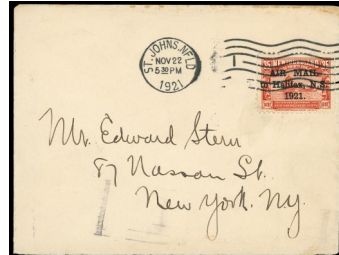 ST. JOHNS, NFLD
NOV 22
5 30 PM
1921
AIR MAIL
to Halifax, N.S.
1921.
Mr. Edward Stern
87 Nassau St.
New York. N.Y.